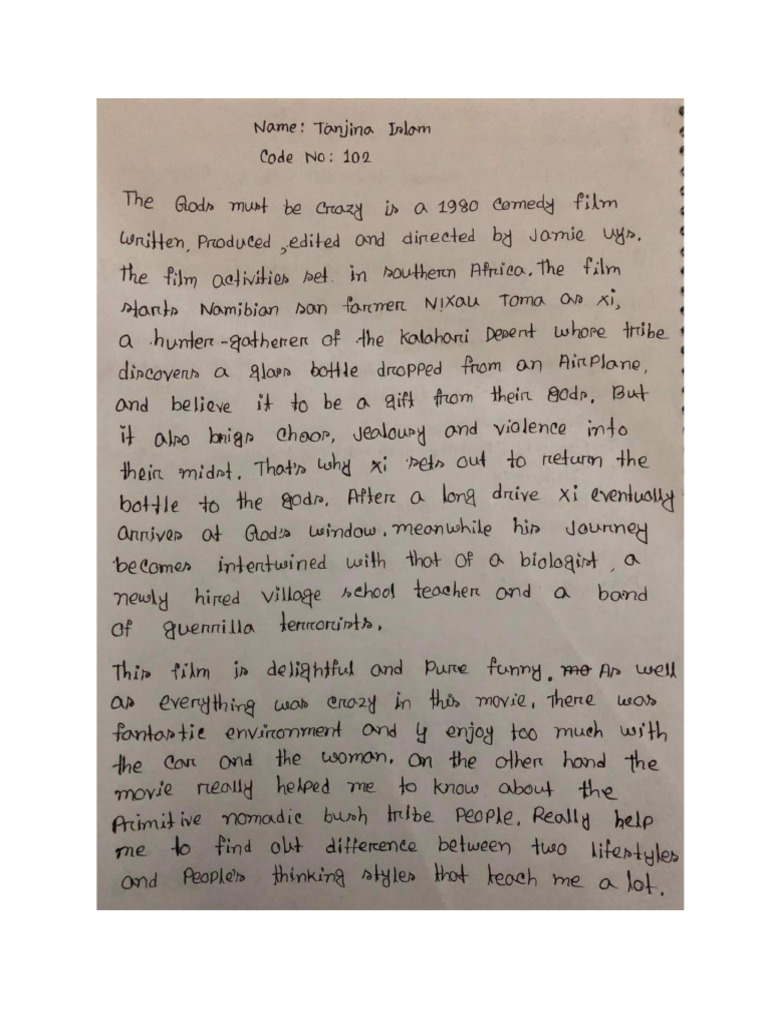 Name: Tanjina Islam
Code No: 102
The Gods must be crazy is a 1980 comedy film
written, Produced, edited and directed by Jamie Uys.
The film activities set in southern Africa. The film
starts Namibian san farmer N!XAU TOMA as Xi,
a hunter-gatherer of the Kalahari Desert whose tribe
discovers a glass bottle dropped from an AirPlane,
and believe it to be a gift from their gods. But
it also brigs chaos, jealousy and violence into
their midst. That's why xi sets out to return the
bottle to the gods. After a long drive Xi eventually
arrives at God's window. meanwhile his Journey
becomes intertwined with that of a biologist, a
newly hired village school teacher and a band
of guerrilla terrorists.
This film is delightful and Pure funny. As well
as everything was crazy in this movie. There was
fantastic environment and y enjoy too much with
the car and the woman. On the other hand the
movie really helped me to know about the
Primitive nomadic bush tribe People. Really help
me to find out difference between two lifestyles
and People's thinking styles that teach me a lot.